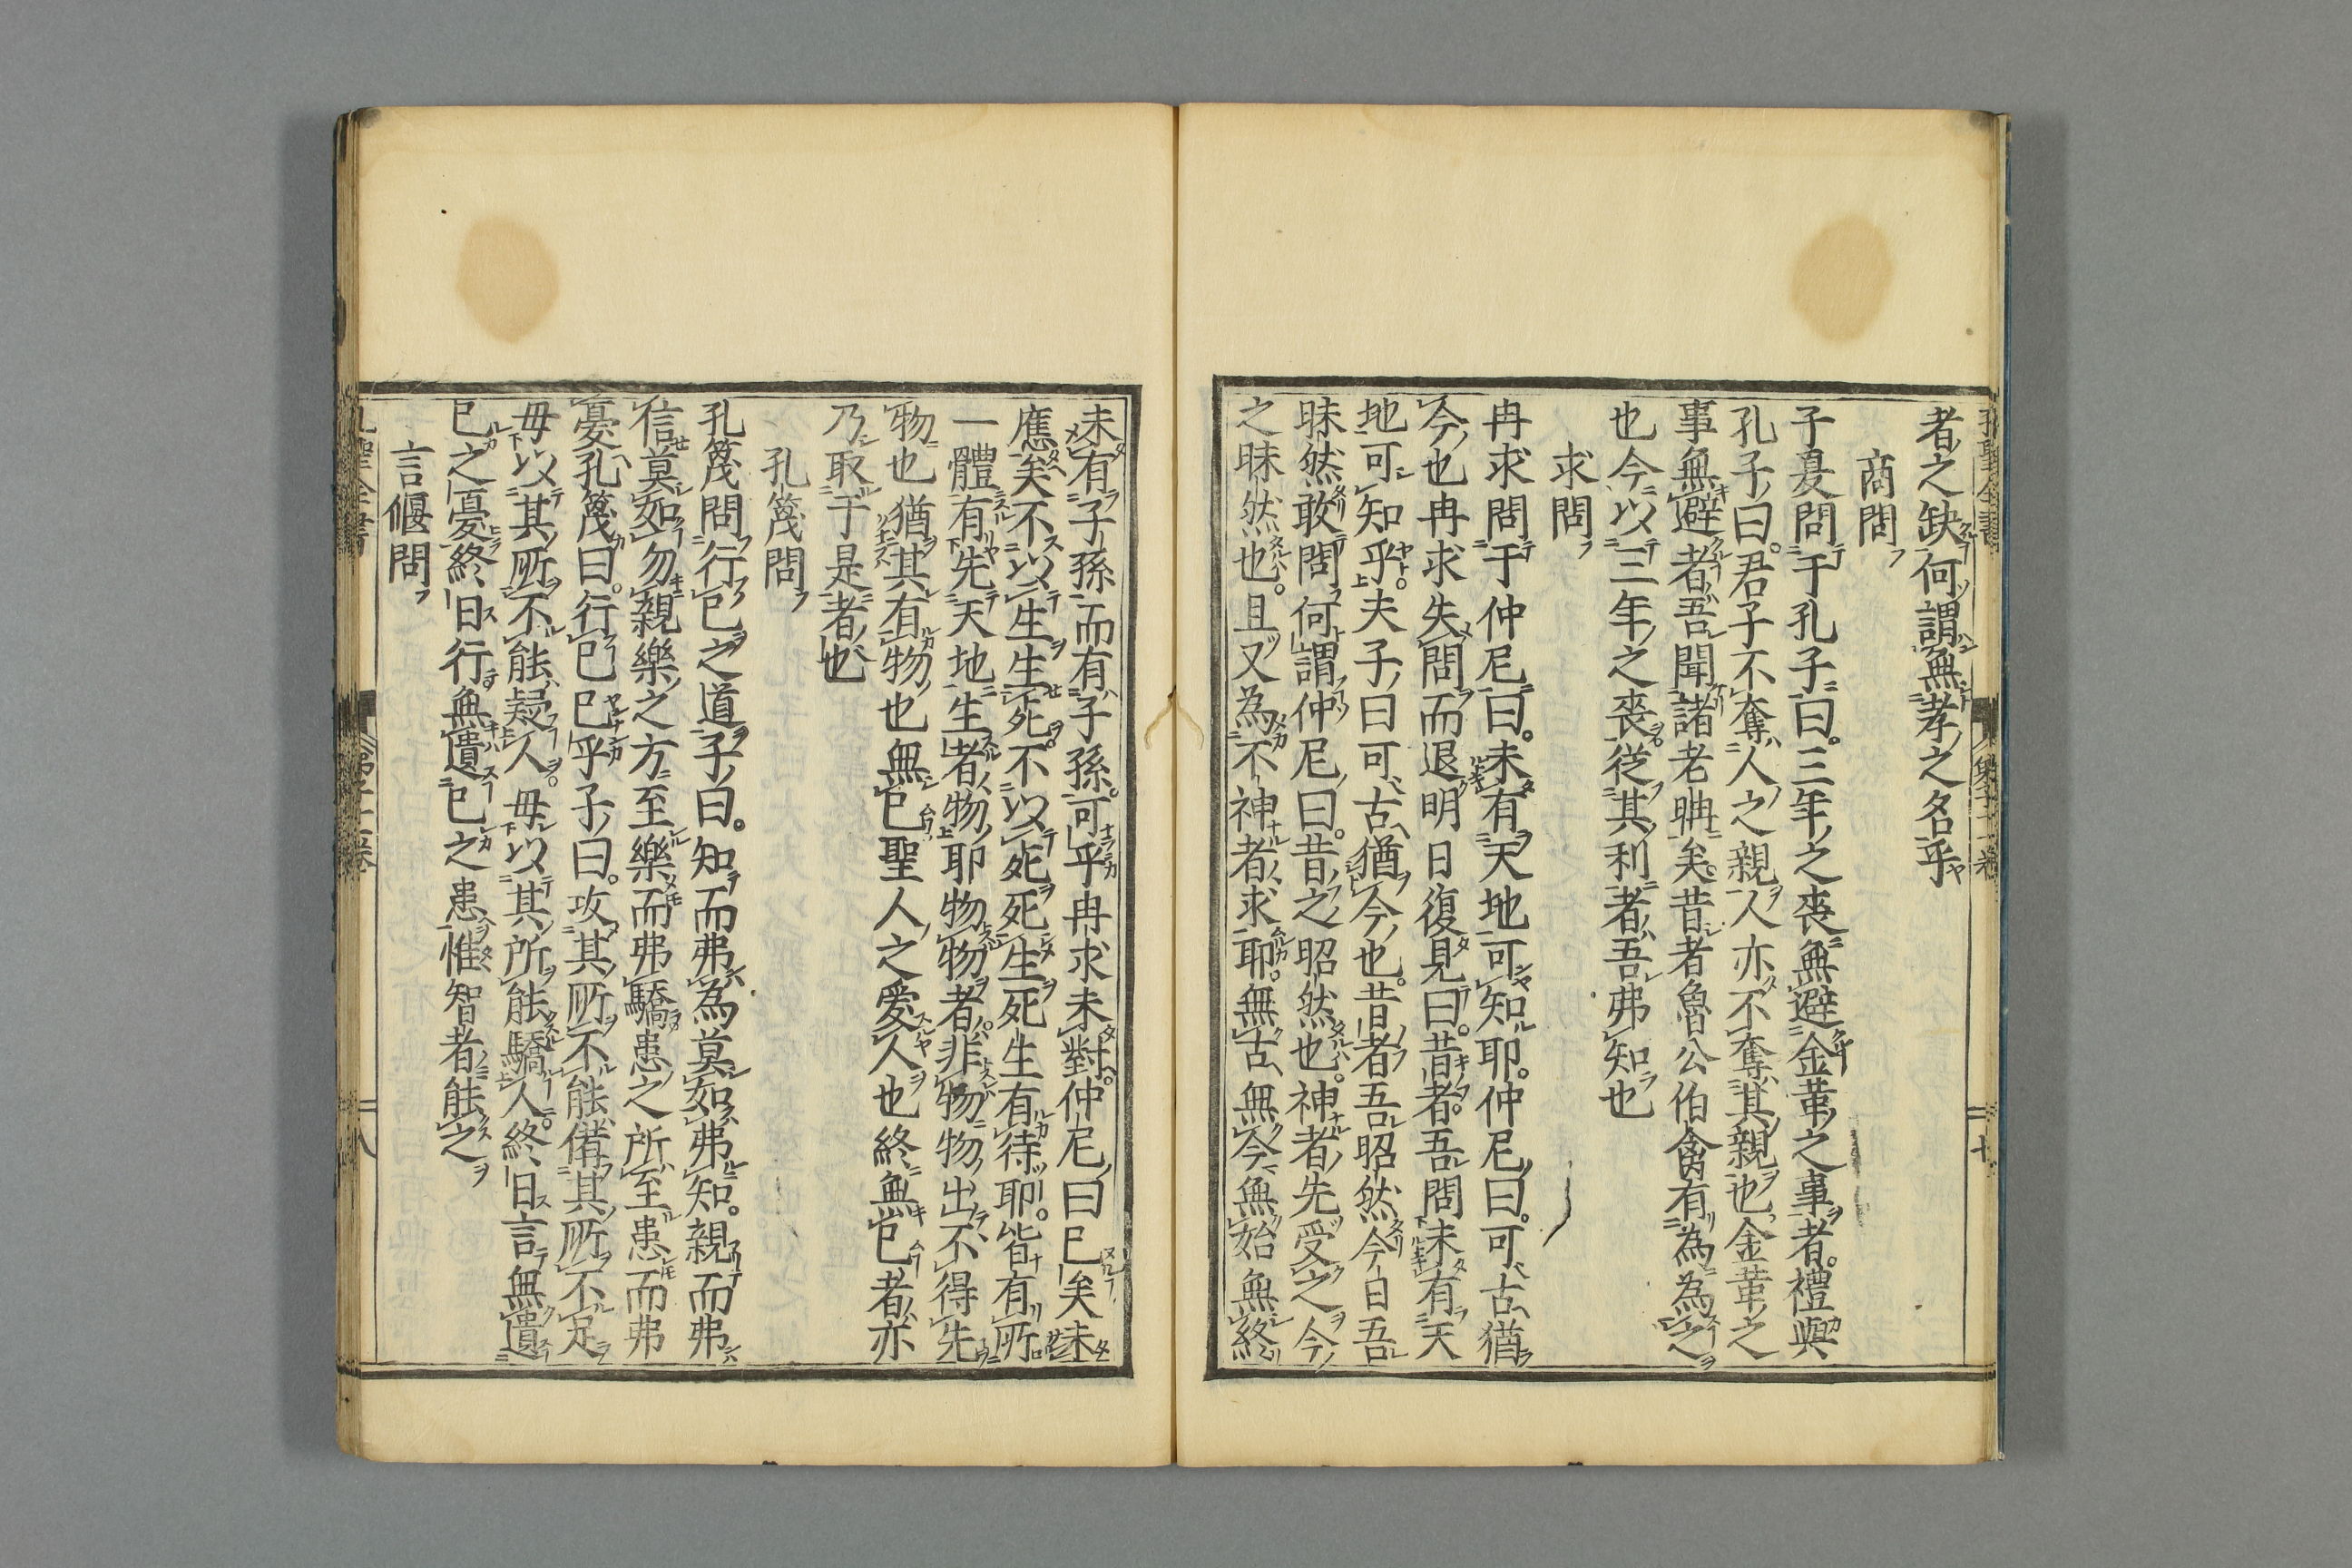 者之缺何謂無孝之名乎
商問
子夏問于孔子曰三年之喪無避金革之事者禮與
孔子曰君子不奪人之親人亦不奪其親也金革之
事無避者吾聞諸老聃矣昔者魯公伯禽有為為之
也今以三年之喪從其利者吾弗知也
求問
冉求問于仲尼曰未有天地可知耶仲尼曰可古猶
今也冉求失問而退明日復見曰昔者吾問未有天
地可知乎夫子曰可古猶今也昔者吾昭然今日吾
昧然敢問何謂仲尼曰昔之昭然也神者先受之今
之昧然也且又為不神者求耶無古無今無始無終
未有子孫而有子孫可乎冉求未對仲尼曰已矣未
應矣不以生生死不以死死生死生有待耶皆有所
一體有先天地生者物耶物物者非物物出不得先
物也猶其有物也無已聖人之愛人也終無已者亦
乃取于是者也
孔篾問
孔篾問行已之道子曰知而弗為莫如弗知親而弗
信莫如勿親樂之方至樂而弗驕患之所至患而弗
憂孔篾曰行已已乎子曰攻其所不能備其所不足
毋以其所不能疑人毋以其所能驕人終日言無遺
已之憂終日行無遺已之患惟智者能之
言偃問